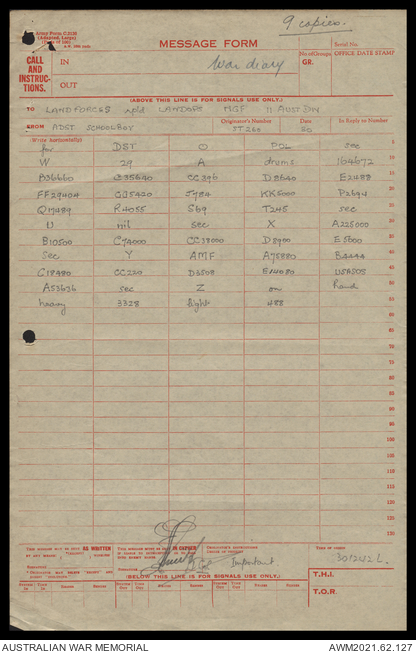 Army Form C.2136
(Adapted, Large)
9 copies.
MESSAGE FORM
Serial No.
CALL AND INSTRUCTIONS.
IN
War diary
No of Groups
GR.
OFFICE DATE STAMP
OUT
(ABOVE THIS LINE IS FOR SIGNALS USE ONLY.)
TO LANDFORCES rptd LANDOPS MGF 11 AUST DIV
FROM ADST SCHOOLBOY
Originator's Number
ST 260
Date
30
In Reply to Number
Write horizontally
for DST O POL sec
W 29 A drums 164672
B36660 C35640 CC396 D8640 E2488
FF29404 GG5420 J784 KK5000 P2694
Q17489 R4055 S69 T245 sec
U nil sec X A225000
B10500 C74000 CC18000 D8900 E5000
sec Y AMF A75880
C18480 CC220 D3508 E14080 USA505
A53636 sec Z on hand
heavy 3328 light 488
THIS MESSAGE MAY BE SENT AS WRITTEN
IN CIPHER
ORIGINATOR'S INSTRUCTIONS
DEGREE OF PRIORITY
Important
TIME OF ORIGIN
301242L.
(BELOW THIS LINE IS FOR SIGNALS USE ONLY.)
T.H.I.
T.O.R.
AUSTRALIAN WAR MEMORIAL
AWM2021.62.127